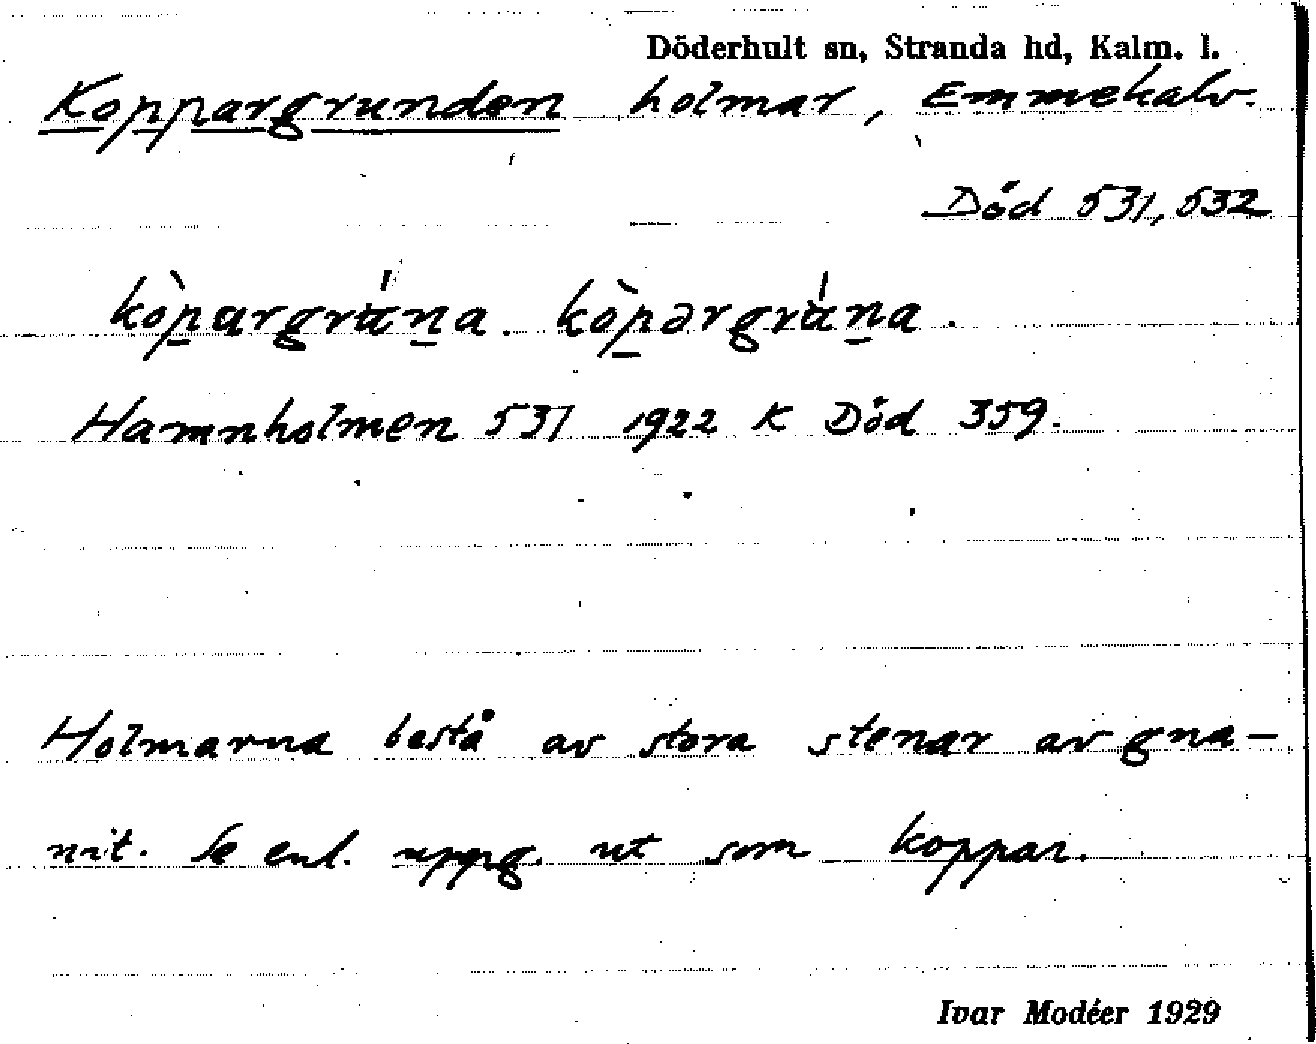 Döderhult sn, Stranda hd, Kalm. l.
Koppargrunden holmar, Emmekalv.
Död 531, 532
kòpargräna. kòpərgräna.
Hamnholmen 531 1922 K Död 359.
Holmarna bestå av stora stenar av gna-
nit. Se enl. uppg. ut som koppar.
Ivar Modéer 1929